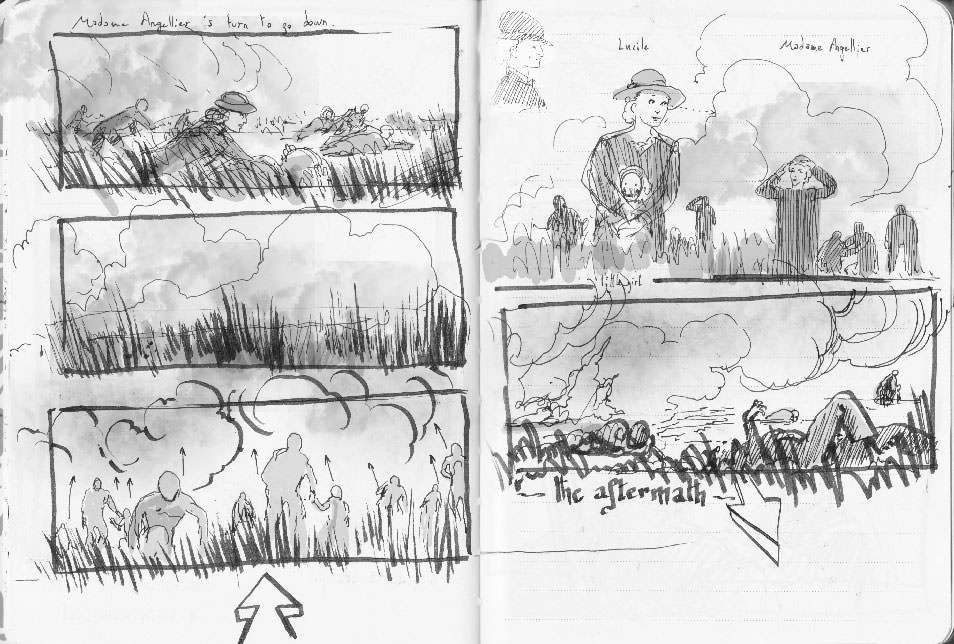 Madame Angellier 's turn to go down.
Lucile
Madame Angellier
little girl
the aftermath